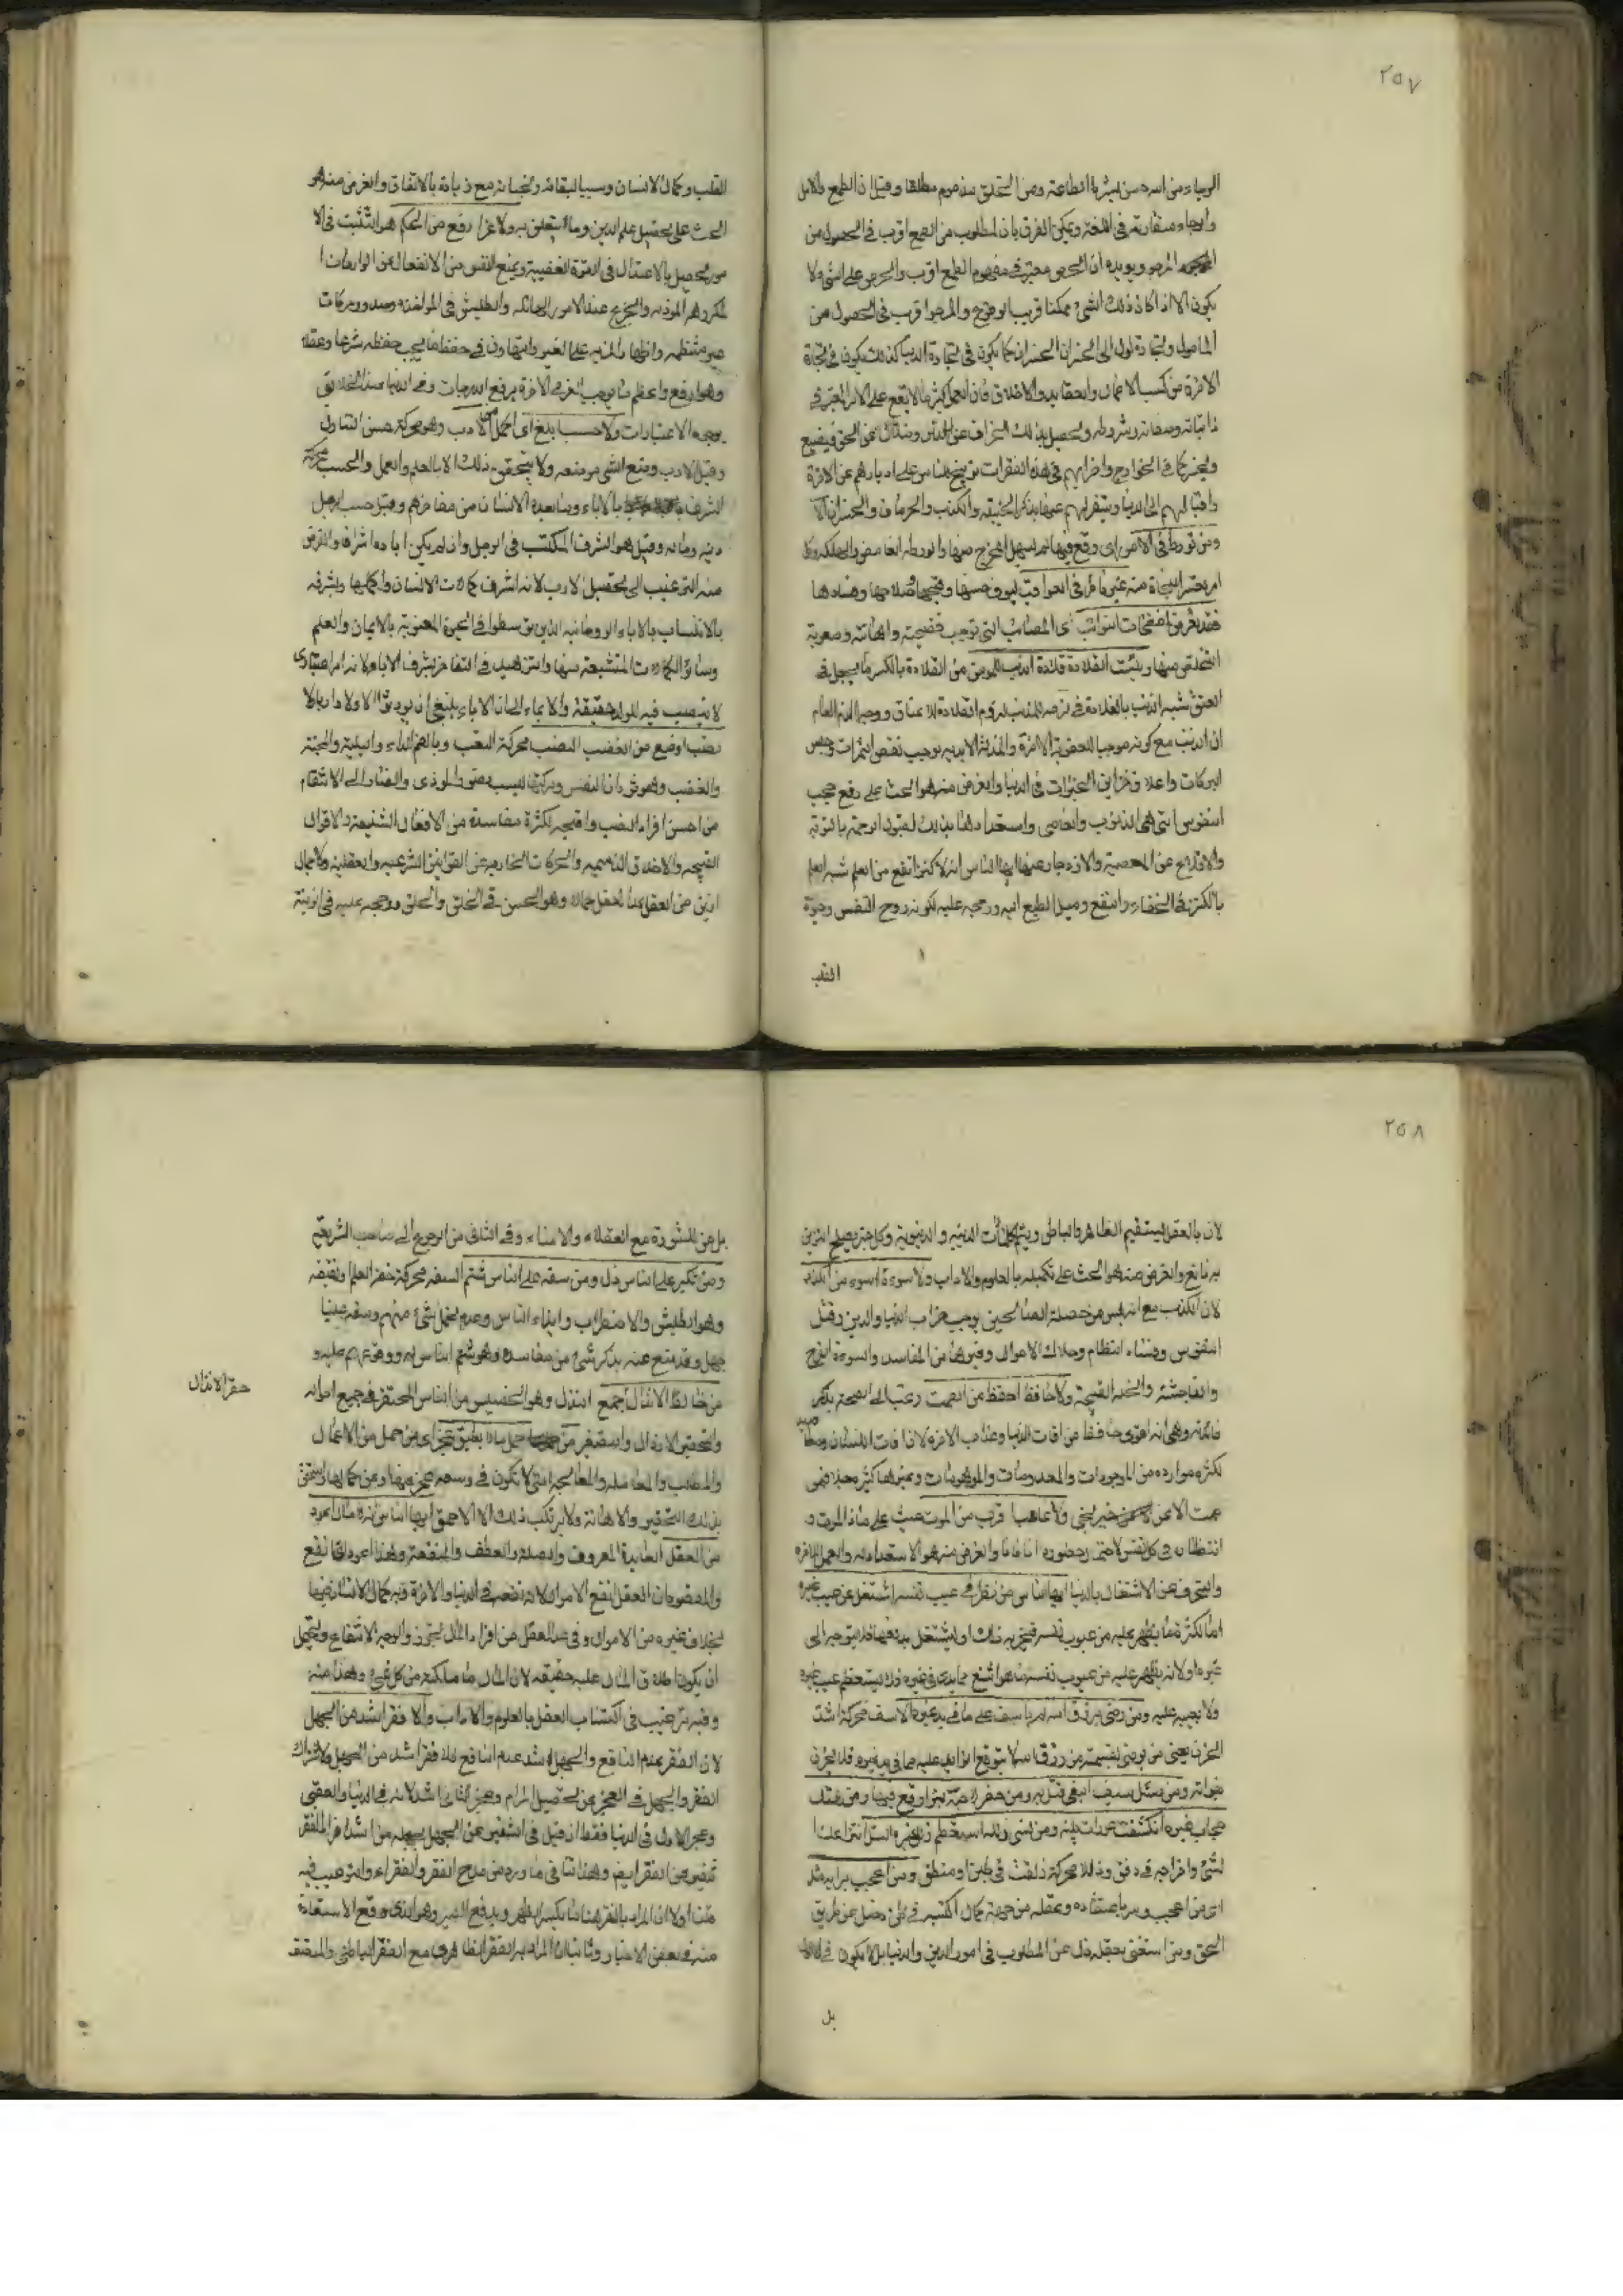 ٢٥٧
الرجاء من الله حسن لبشر بالطاعة ومن الخلق مذموم مطلقا وقيل ان الطمع والامل
والرجاء متقاربة في اللغة ويمكن الفرق بان المطلوب من الطمع اقرب في الحصول من
المرجو ويؤيده ان الحرص معتبر في مفهوم الطمع والحرص على الشيء لا
يكون الا اذا كان ذلك الشيء ممكنا قريب الوقوع والمرجو اقرب في الحصول من
المأمول ولتجارة تؤل الى الخسران الخسران كما يكون في تجارة الدنيا كذلك يكون في تجارة
الاخرة من كسب الاعمال والعقايد والاخلاق فان العمل كثيرا ما لا يقع على الامر المعتبر في
ذاتياته وصفاته وشروطه ويحصل بذلك انحراف عن الدين وضلال عن الحق فيضيع
ويخسر كما في الخوارج واضرابهم في هذه الفقرات توبيخ للناس على ادبارهم عن الاخرة
واقبالهم الى الدنيا وتنفيرهم عنها بذكر الخيبة والكذب والحرمان والخسران الا
ومن تورط في الامور اي وقع فيها لم يسهل الخروج منها والورطة الغامض والهلكة وكل
امر يعسر النجاة منه غير ناظر في العواقب وحسنها وقبحها وصلاحها وفسادها
فقد تعرض لمفضحات النوائب اي المصائب التي توجب فضيحته واهانته وصعوبة
التخلص منها وبئست القلادة قلادة الذنب للمؤمن القلادة بالكسر ما يجعل في
العنق شبه الذنب بالقلادة في لزمه للمذنب لزوم القلادة للاعناق ووجه الذم العام
ان الذنب مع كونه موجبا للعقوبة الاخرة والمذلة الابدية يوجب نقص الثمرات وحبس
البركات واغلاق خزاين الخيرات في الدنيا والغرض منه هو الحث على رفع حجب
النفوس التي هي الذنوب والمعاصي واستعدادها بذلك لقبول الرحمة بالتوبة
والاقلاع عن المعصية والانزجار عنها ايها الناس انه لا كنز انفع من العلم شبه العلم
بالكنز في الخفاء والنفع وميل الطبع اليه ورجحه عليه لكونه روح النفس وحيوة
القلب
القلب وكمال الانسان وسببا لبقائه ونجاته مع زيادته بالانفاق والغرض منه هو
الحث على تحصيل علم الدين وما يتعلق به ولا عز ارفع من الحلم هو التثبت في الا
مور يحصل بالاعتدال في القوة الغضبية ويمنع النفس من الانفعال عن الواردات ا
لمكروهة المؤذية والجزع عند الامور الهائلة والطيش في المؤاخذه وصدور حركات
غير منتظمه واظهار المزيه على الغير والتهاون في حفظ ما يجب حفظه شرعا وعقلا
وهو ارفع واعظم ما يوجب العز في الاخرة برفع الدرجات وفي الدنيا عند الخلايق
بوجه الاعتبارات ولا حسب ابلغ اي اكمل من الادب وهو محركة حسن التناول
وقيل الادب وضع الشيء موضعه ولا يتحقق ذلك الا بالعلم والعمل والحسب محركة
الشرف بالاباء وما يعده الانسان من مفاخرهم وقيل حسب الرجل
دينه وماله وقيل هو الشرف المكتسب في الرجل وان لم يكن اباءه اشرافا والغرض
منه الترغيب الى تحصيل الادب لانه اشرف كمالات الانسان واكملها وشرفه
بالانتساب بالاباء الروحانية الذين توسطوا في الحيوة المعنوية بالايمان والعلم
وسائر الكمالات المتشعبة منها والتزهيد في التفاخر بشرف الاباء لانه امر اعتباري
لا نصيب فيه للولد حقيقة والايماء الى ان الاباء ينبغي ان يورثوا الاولاد اربا ولا
نصب اوضع من الغضب النصب محركة التعب وبالضم الداء والبلية والمحنة
والغضب وهو ثوران النفس وحركتها بسبب تصور المؤذي والضار الى الانتقام
من اخس افراد النصب واقبحه لكثرة مفاسده من الافعال الشنيعة والاقوال
القبيحه والاخلاق الذميمه والحركات الخارجه عن القوانين الشرعيه والعقلية ولا جمال
ازين من العقل الجمال وهو الحسن في الخلق والخلق ورجحه عليه في الزينة
٢٥٨
لان بالعقل يستقيم الظاهر والباطن ويتم الكمالات الدينية والدنيوية وكل خير يصلح التزين
به تابع والغرض منه هو الحث على تكميله بالعلوم والاداب ولا سوءة اسوء من الكذب
لان الكذب مع انه ليس من خصلة الصالحين يوجب خراب الدنيا والدين وقتل
النفوس وفساد انتظام وهلاك الاموال وغيرها من المفاسد والسوءة الفرج
والفاحشة والخلة القبيحة ولا حافظ احفظ من الصمت رغب الى الصمت بذكر
فائدته وهي انه اقوى حافظ من افات الدنيا وعذاب الاخرة لان افات اللسان
لكثرة موارده من الموجودات والمعدومات والموهومات وغيرها كثيرة جدا فمن
صمت الا عن خير نجى ولا غائب اقرب من الموت حيث على هذا الموت و
انتظاره في كل نفس لاحتمال حضوره اناما فانا والغرض منه هو الاستعداد له والعمل للاخرة
والتحرف عن الاشتغال بالدنيا ايها الناس من نظر في عيب نفسه اشتغل عن عيب غيره
اما لكثرة ما يظهر عليه من عيوب نفسه فيتحير به ذلك او ليشتغل بدفعها فلا يتوجه الى
غيره او لانه يظهر عليه من عيوب نفسه ما هو اشنع مما يدري في غيره فلا يستعظم عيب غيره
ولا يعيبه عليه ومن رضي برزق الله لم ياسف على ما في يد غيره الاسف محركة اشد
الحزن يعني من يرضى بقسمته من رزق الله لا يتوقع الزايد عليه مما في يد غيره فلا يحزن
بفواته ومن سل سيف البغي قتل به ومن حفر لاخيه بئرا وقع فيها ومن هتك
حجاب غيره انكشفت عورات بيته ومن نسي زلله استعظم زلل غيره السل انتزاعك ا
لشيء واخراجه في رفق وزلل محركة زلقت في طين او منطق ومن اعجب برايه ضل
اي من اعجب برايه باعتقاده وعقله من جهة كمال اكتسبه في ظنه ضل عن طريق
الحق ومن استغنى بعقله زل عن المطلوب في امور الدين والدنيا بل لا يكون
بل
بل من المشورة مع العقلاء والامناء وفي الثاني من الرجوع الى صاحب الشريعة
ومن تكبر على الناس ذل ومن سفه على الناس شتم السفه محركة خفة الحلم ونقيضه
وهو الطيش والاضطراب وايذاء الناس وعدم تحمل شيء منهم وسفه علينا
جهل وقد منع عنه بذكر شيء من مفاسده وهو شتم الناس له ووقوعهم عليه و
من خالط الانذال حقر الانذال جمع النذل وهو الخسيس من الناس المحتقر في جميع احواله
والتحقير الاذلال والتصغير من حمل ما لا يطيق عجز اي من حمل من الاعمال
والمطالب والمعاملة والمعالجه التي لا تكون في وسعه عجز عنها وعن كمالها واستحق
بذلك التحقير والاهانة ولا يرتكب ذلك الا الاحمق ايها الناس انه لا مال اعود
من العقل العايدة المعروف والصلة والعطف والمنفعة وهذا اعود اي انفع
والمقصود ان العقل انفع الاموال لان نفعه في الدنيا والاخرة وبه كمال الانسان فيهما
بخلاف غيره من الاموال وفي عد العقل من افراد المال تجوز والوجه الانتفاع ويحتمل
ان يكون اطلاق المال عليه حقيقه لان المال ما ملكته من كل شيء وهذا منه
وفيه ترغيب في اكتساب العقل بالعلوم والاداب ولا فقر اشد من الجهل
لان الفقر عدم النافع والجهل اشد عدم النافع فلا فقر اشد من الجهل ولاشتراك
الفقر والجهل في العجز عن تحصيل المرام وعجز الثاني اشد لانه في الدنيا والعقبى
وعجز الاول في الدنيا فقط ان قيل في التنفير عن الجهل بجعله من اشد افراد الفقر
تنفير من الفقر ايضا وهذا ينافي ما ورد من مدح الفقر والفقراء والترغيب فيه
قلنا اولا ان المراد بالفقر هنا ما يكسر الظهر ويدفع الصبر وهو الذي وقع الاستعاذة
منه في بعض الاخبار وثانيا ان المراد به الفقر الظاهري مع الفقر الباطني والمتصف
حقر الانذال